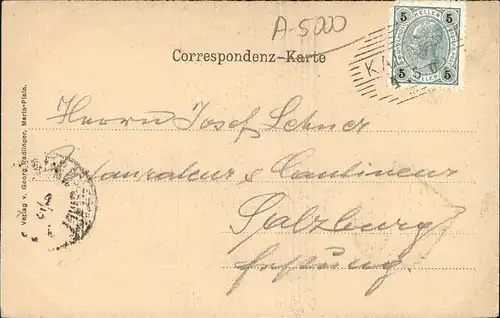 A-5000
5 HELLER 5
5 5
Correspondenz-Karte
Herrn Josef Lehner
Restaurateur & Cantineur
Salzburg
Festung.
Verlag v. Georg Radlinger, Maria-Plain.